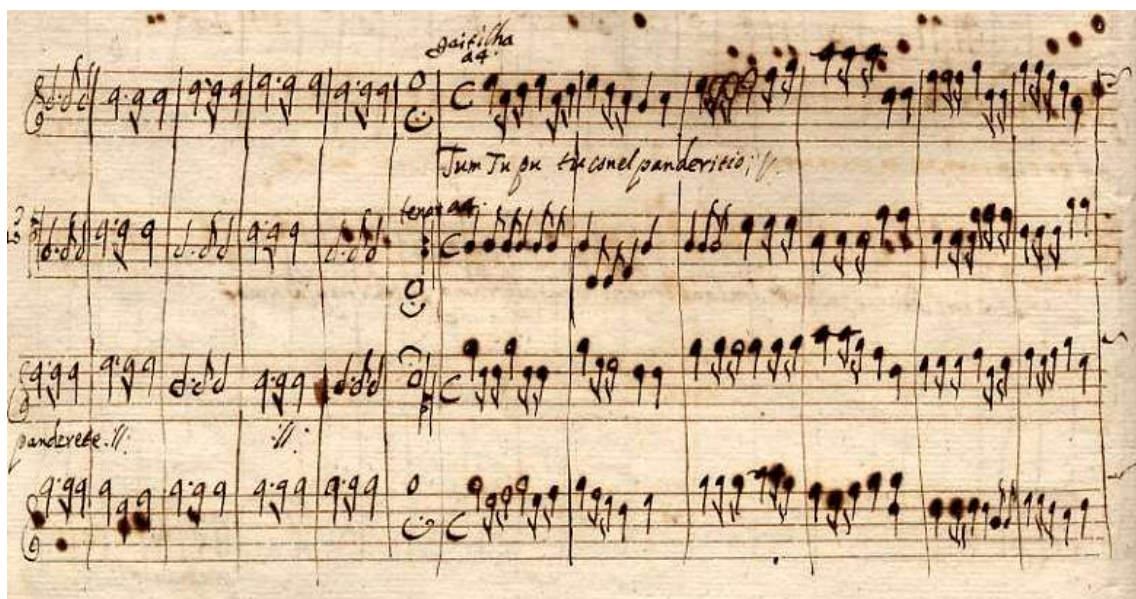 gaitilha
a4.
Tum Tu pu tu conel panderitio ://.
tenor a4.
panderete ://: ://: